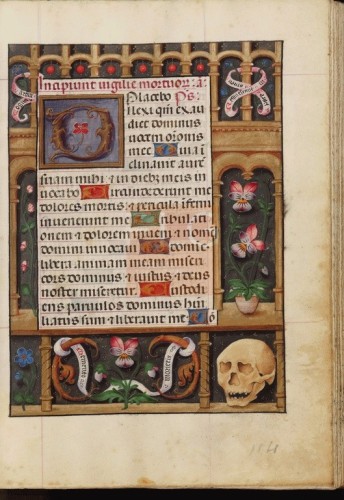 Incipiunt vigilie mortuor₂ a:
Placebo Ps:
Dilexi qm̄ exau
diet dominus
vocem or̄onis
mee Quia ī
clinauit aurē
suam mihi: ⁊ in dieb₃ meis in
uocabo Circundederunt me
dolores mortis: ⁊ pericula īferni
inuenerunt me Tribulati
onem ⁊ dolorem inueni: ⁊ nomē
domini inuocaui O domīe
libera animam meam: miseri
cors dominus ⁊ iustus ⁊ deus
noster miseretur Custodi
ens paruulos dominus: hu
liatus sum ⁊ liberauit me
memento